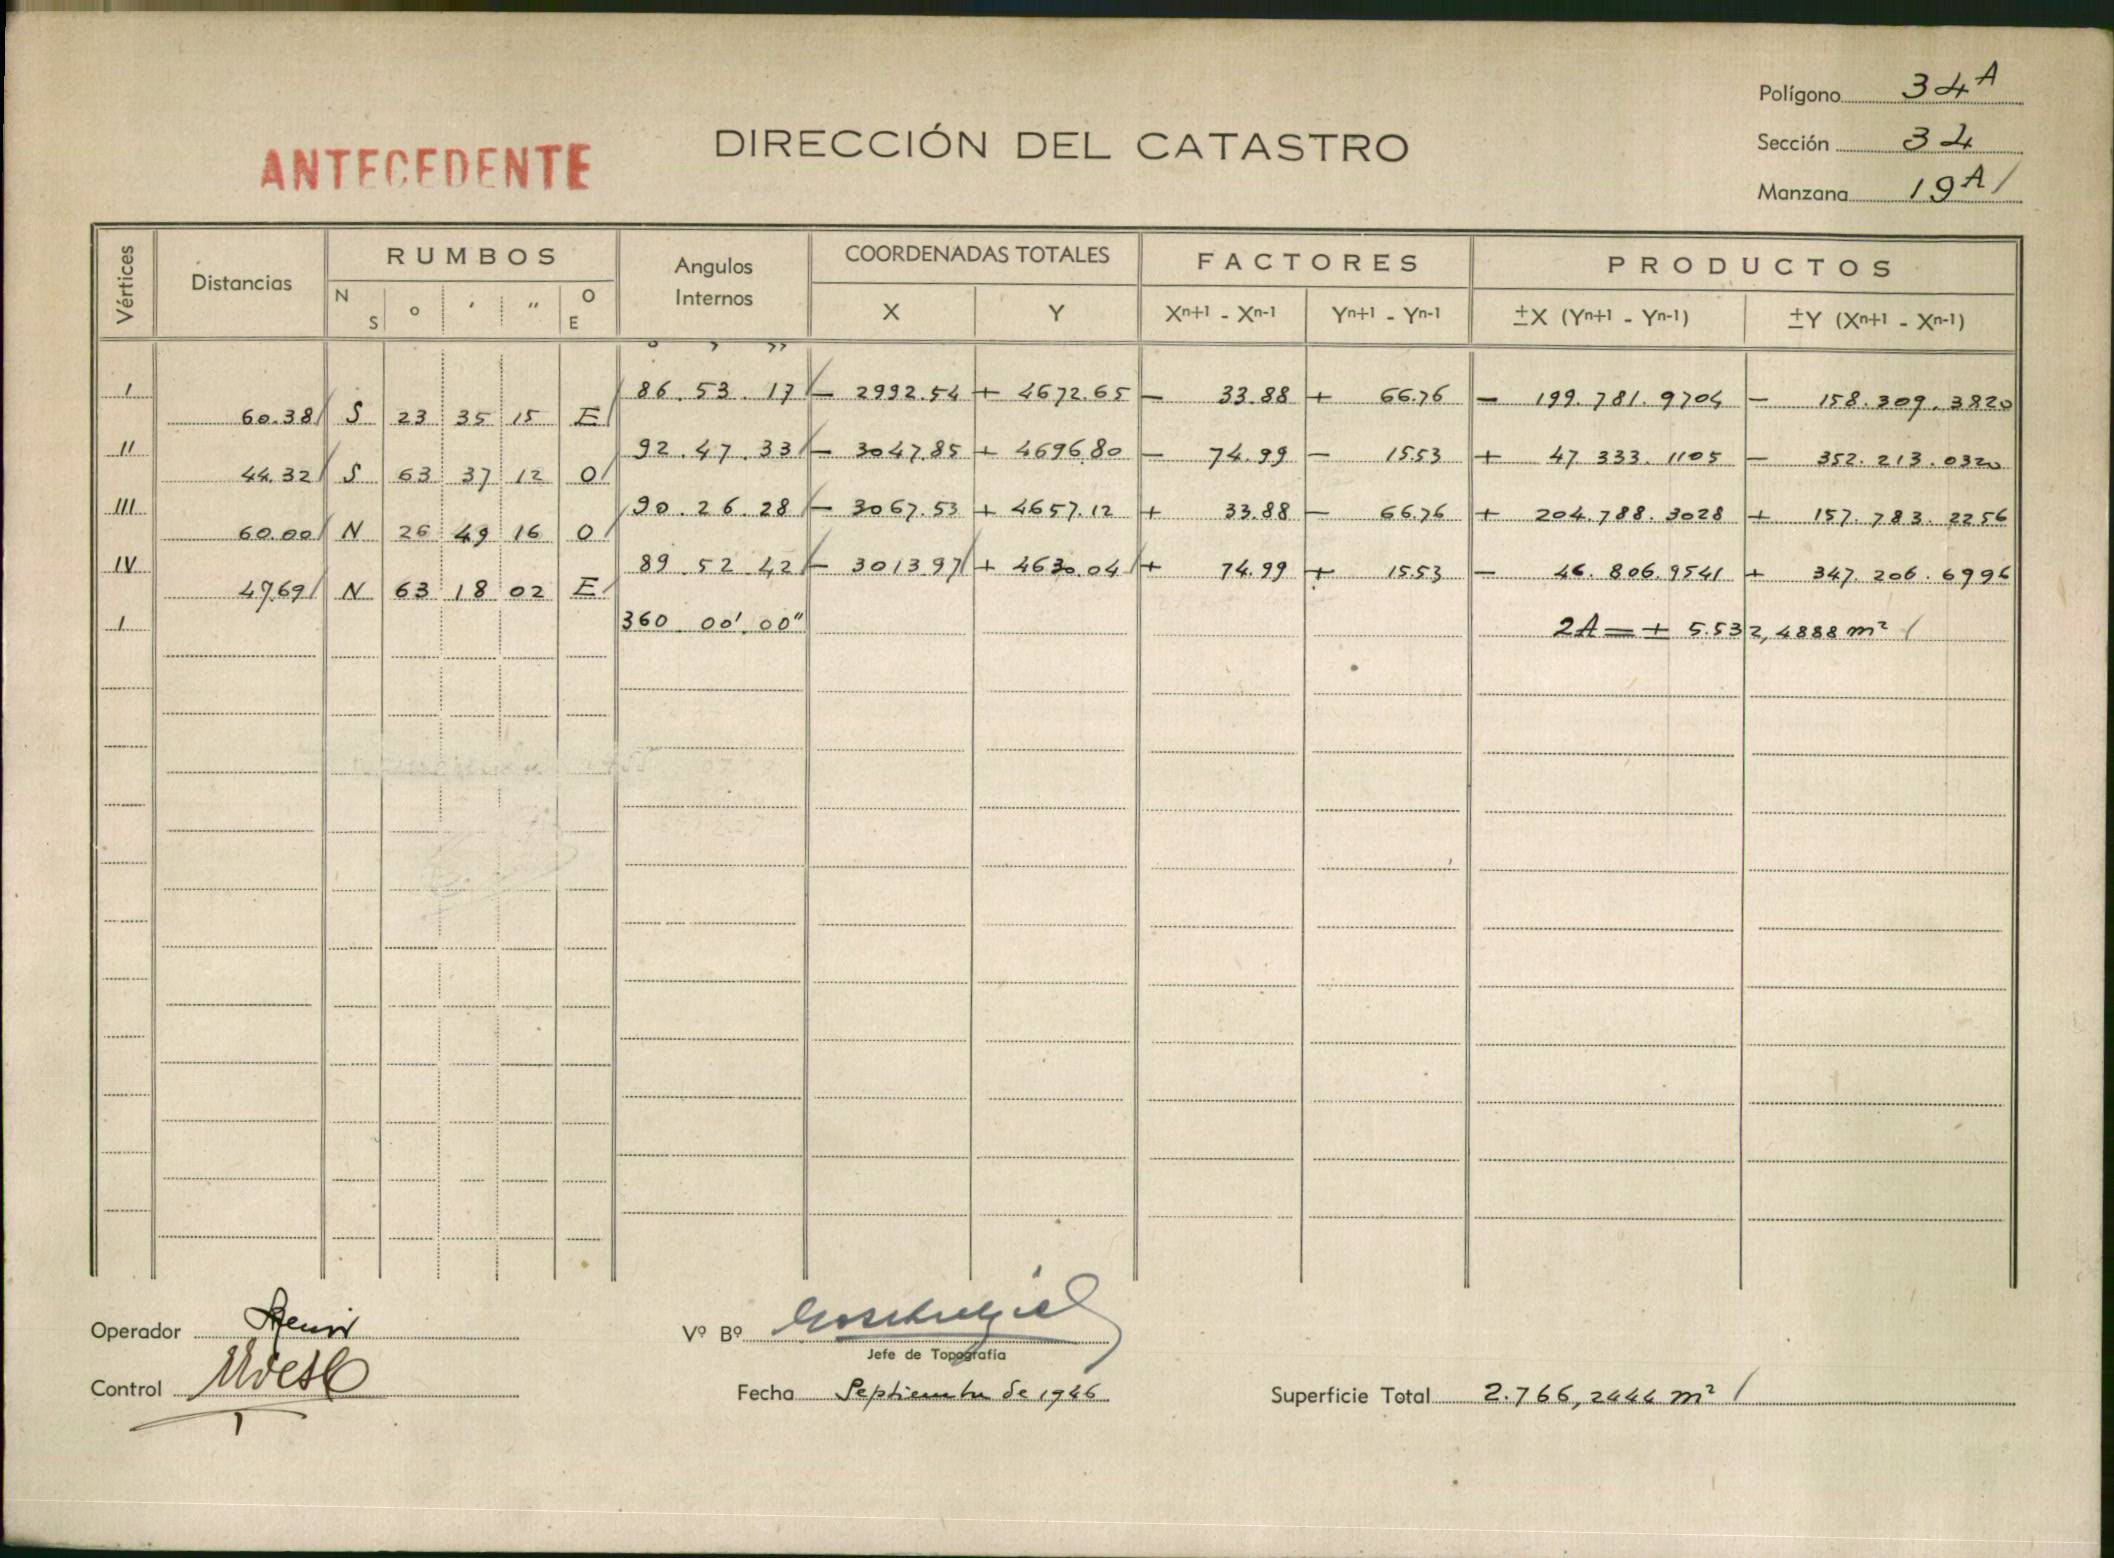 Polígono 34A
ANTECEDENTE DIRECCIÓN DEL CATASTRO
Sección 34
Manzana 19A/
Vértices Distancias RUMBOS Angulos Internos COORDENADAS TOTALES FACTORES PRODUCTOS
N S ° ' " O E X Y Xn+1 - Xn-1 Yn+1 - Yn-1 ±X (Yn+1 - Yn-1) ±Y (Xn+1 - Xn-1)
° ' "
I 86. 53. 17 - 2992.54 + 4672.65 - 33.88 + 66.76 - 199.781.9704 - 158.309.3820
60.38 S 23 35 15 E
II 92. 47. 33 - 3047.85 + 4696.80 - 74.99 - 15.53 + 47.333.1105 - 352.213.0320
44.32 S 63 37 12 O
III 90. 26. 28 - 3067.53 + 4657.12 + 33.88 - 66.76 + 204.788.3028 + 157.783.2256
60.00 N 26 49 16 O
IV 89 52 42 - 3013.97 + 4630.04 + 74.99 + 15.53 - 46.806.9541 + 347.206.6996
47.69 N 63 18 02 E
I 360 00' 00" 2A = + 5.532,4888 m² /
Operador
Vº Bº
Jefe de Topografía
Control
Fecha Septiembre de 1946
Superficie Total 2.766,2444 m² /